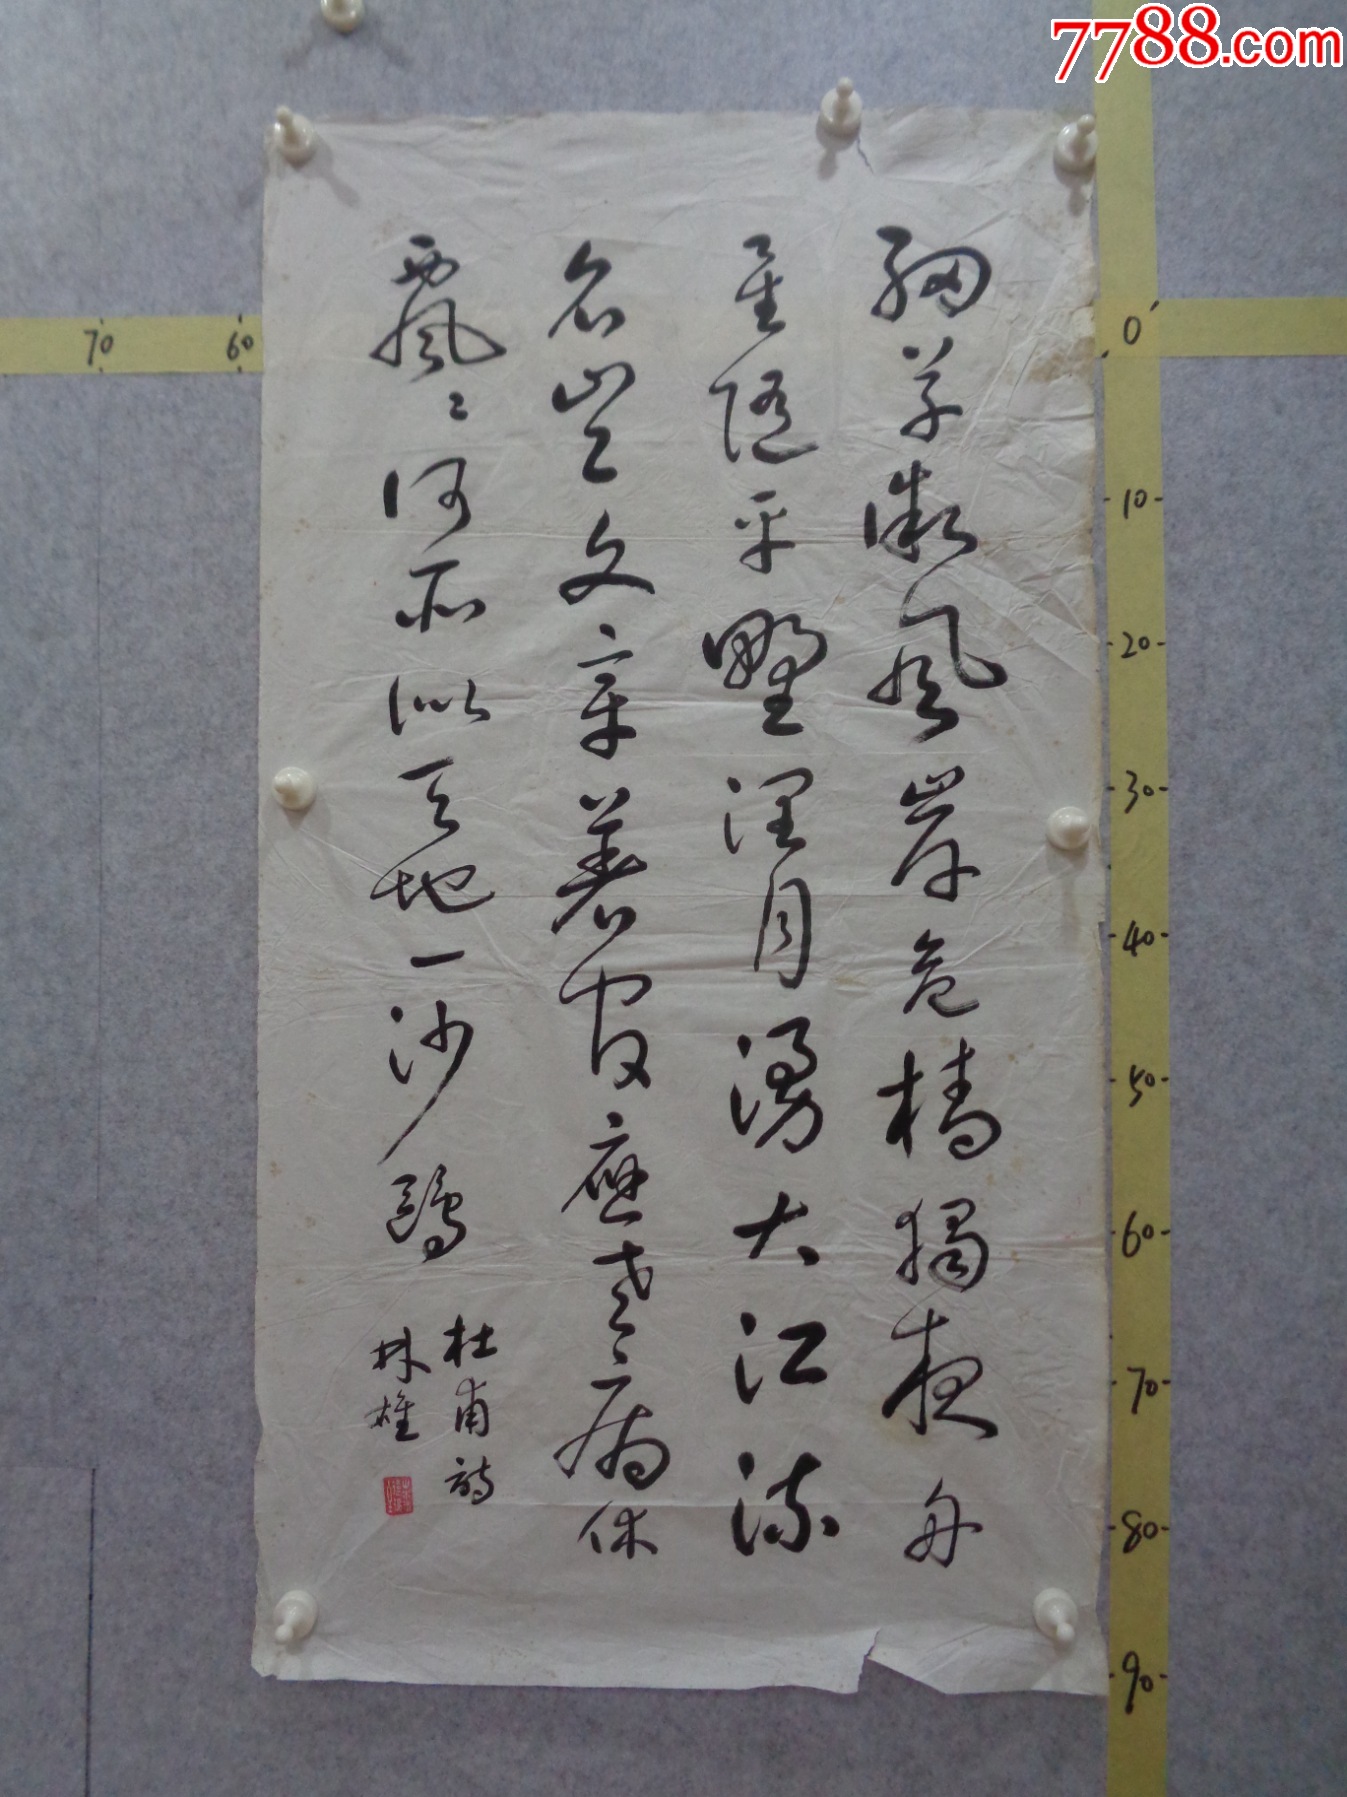 7788.com
細草微風岸危檣獨夜舟
星隨平野濶月湧大江流
名豈文章著官應老病休
飄々何所似天地一沙鷗
杜甫詩
林雄
70
60
0
10
20
30
40
50
60
70
80
90